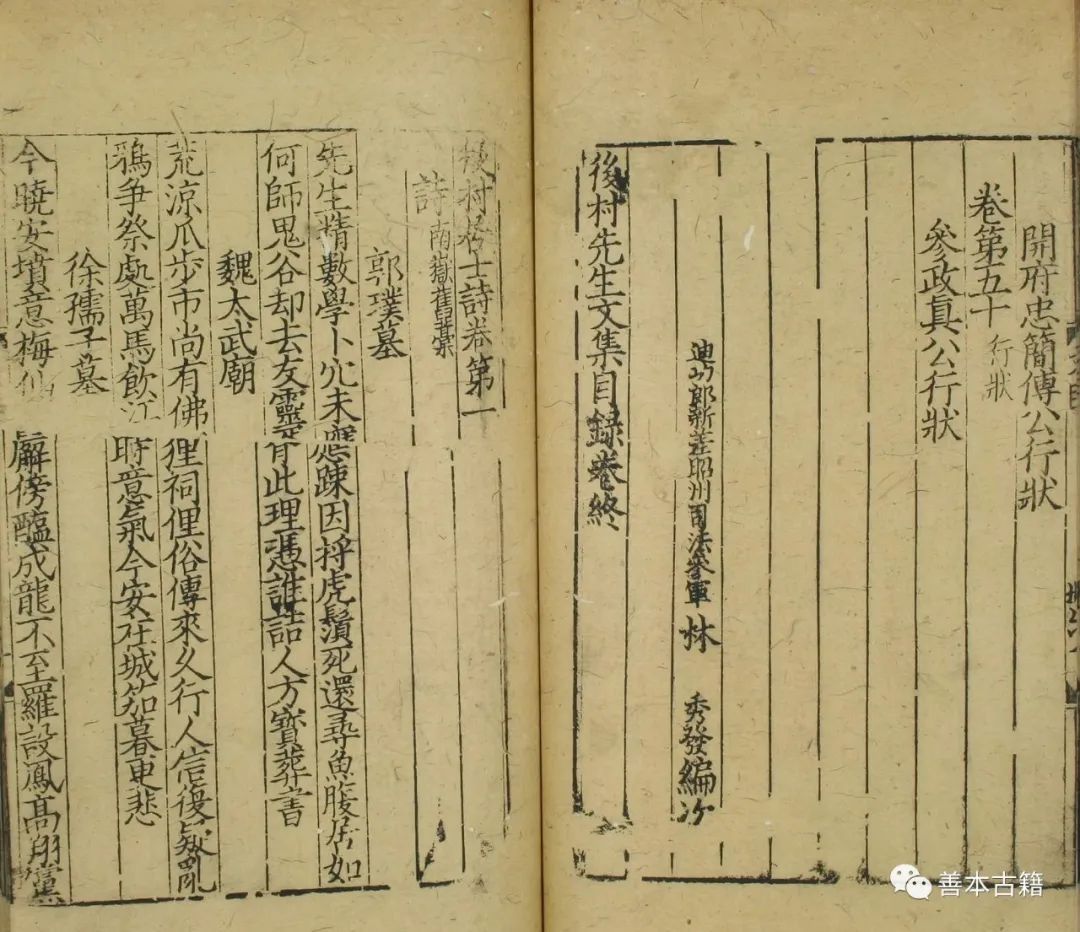 開府忠簡傅公行狀
卷第五十 行狀
參政真公行狀
迪功郎新差昭州司法參軍 林 秀發 編次
後村先生文集目錄卷終
後村居士詩卷第一
詩 南嶽舊藁
郭璞墓
先生精數學卜穴未應踈因捋虎鬚死還尋魚腹居如
何師鬼谷却去友靈胥此理憑誰詰人方寶葬書
魏太武廟
荒涼瓜步市尚有佛狸祠俚俗傳來久行人信復疑亂
鴉争祭處萬馬飲江時意氣今安在城笳暮更悲
徐孺子墓
今曉安墳意梅仙 傍醢成龍不至羅設鳳高翔黨
善本古籍